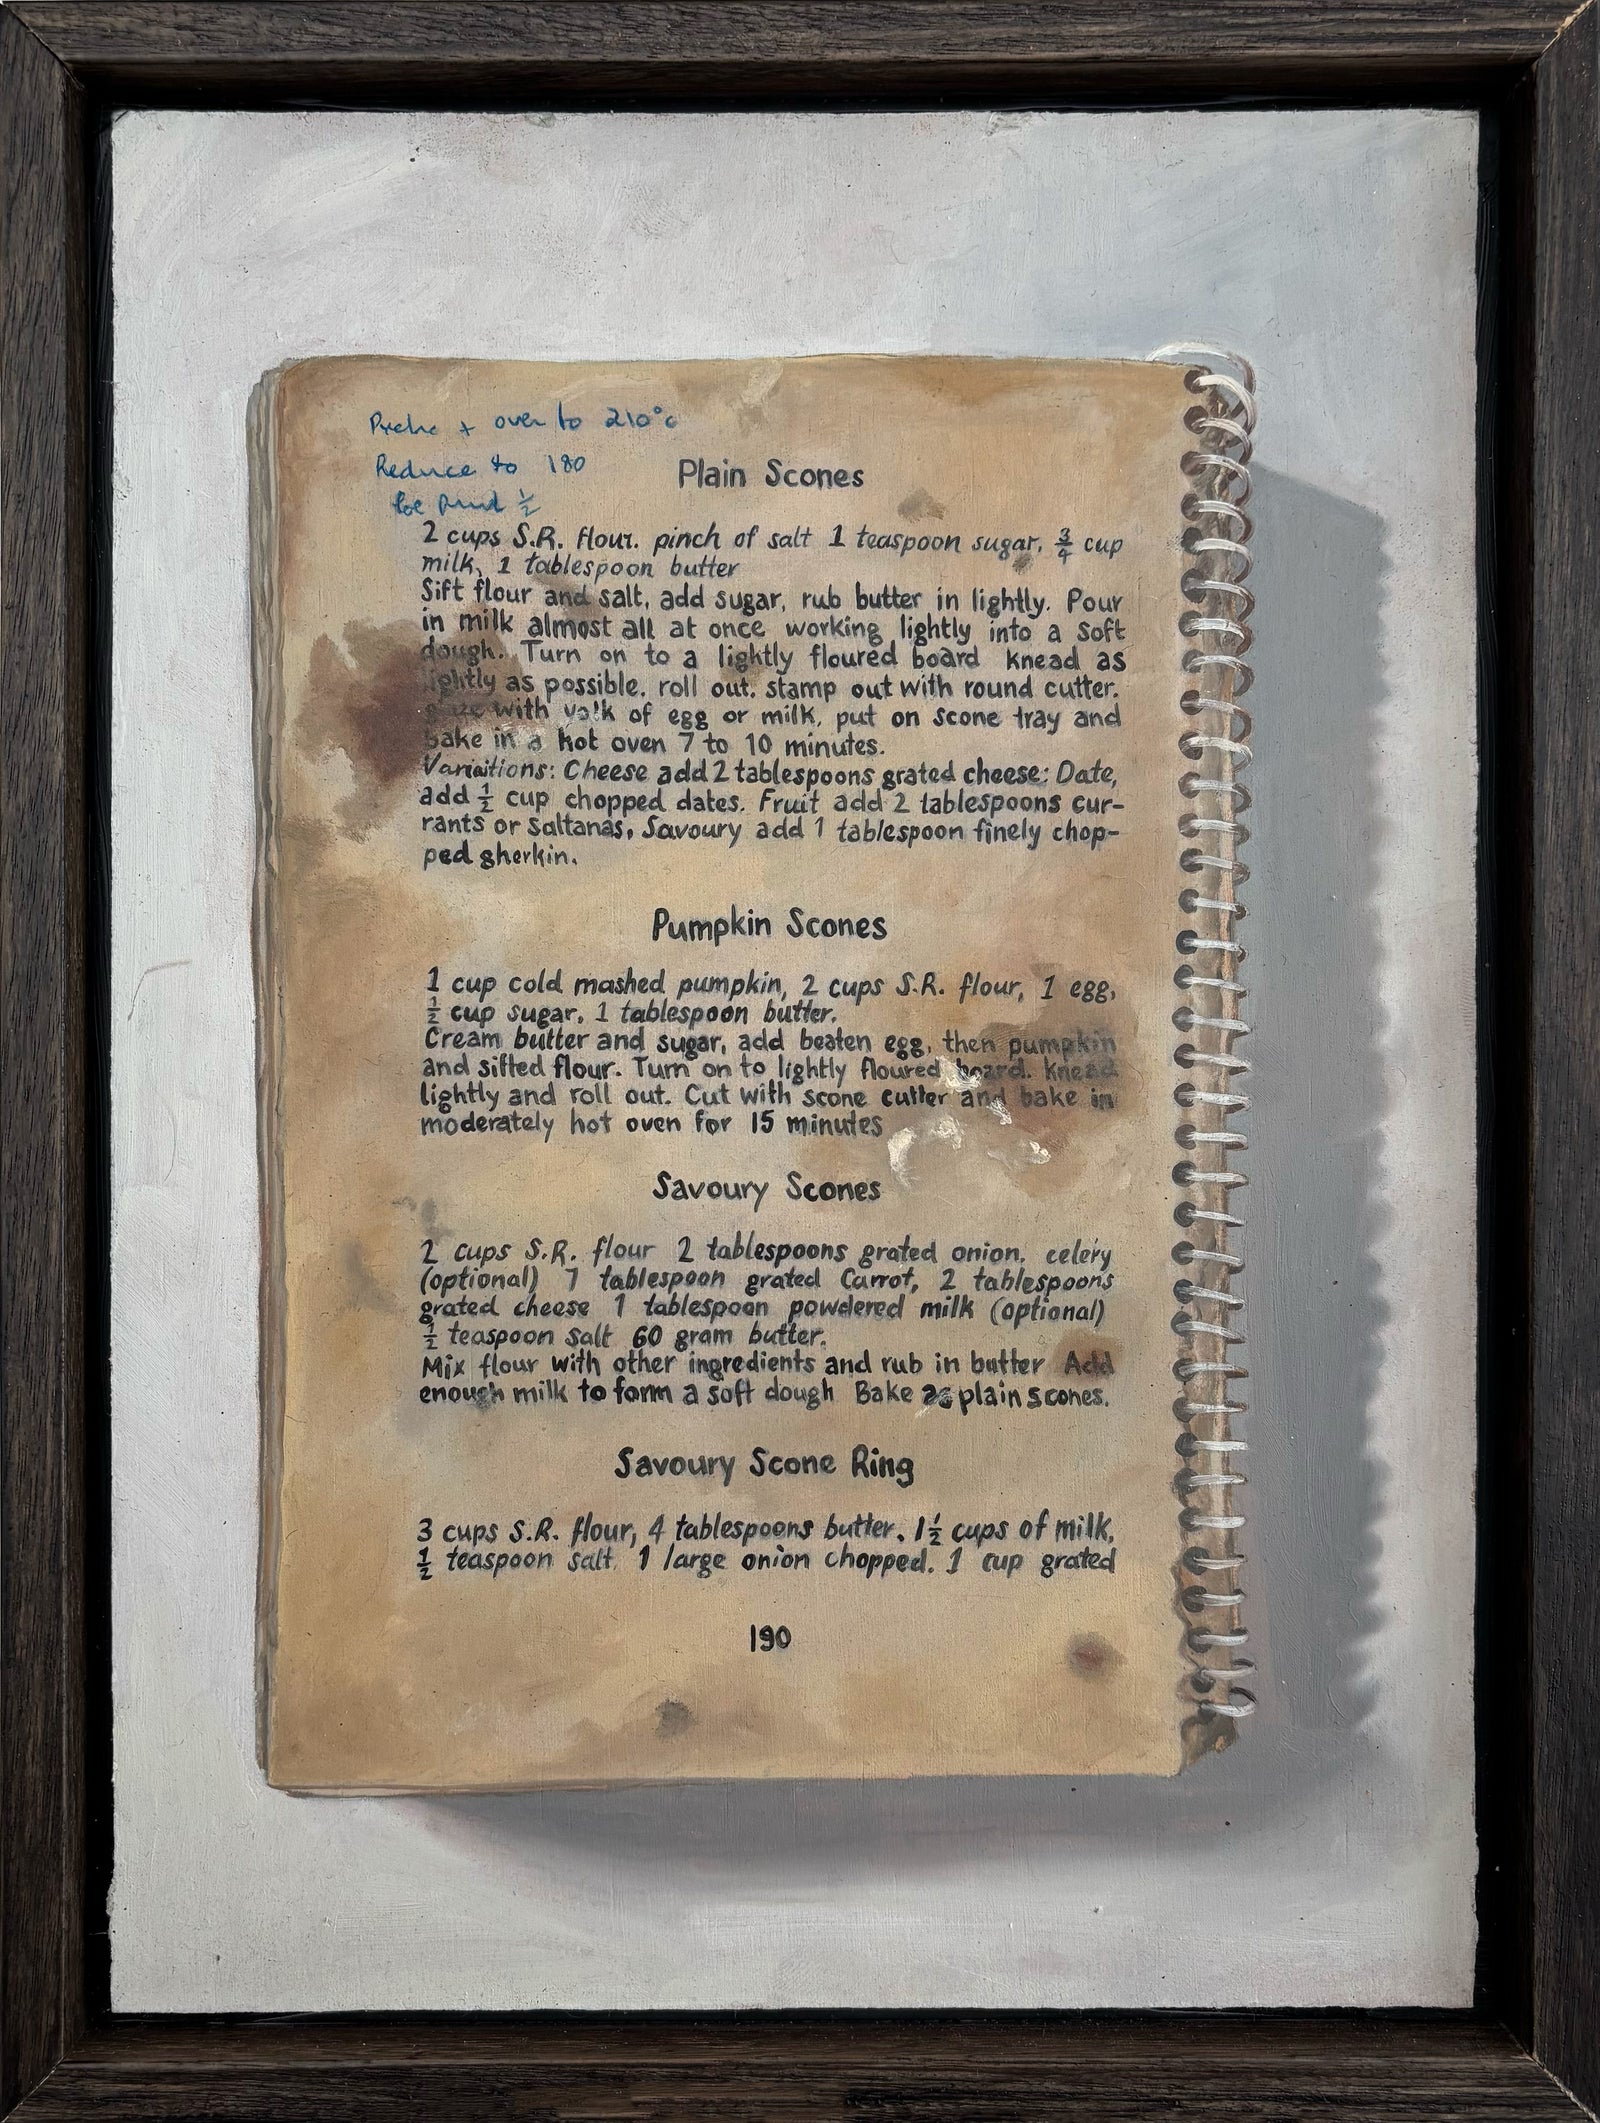 over to 210°c
Reduce to 180
Plain Scones
2 cups S.R. flour. pinch of salt 1 teaspoon sugar, 3/4 cup
milk, 1 tablespoon butter
Sift flour and salt, add sugar, rub butter in lightly. Pour
in milk almost all at once working lightly into a soft
dough. Turn on to a lightly floured board knead as
lightly as possible. roll out. stamp out with round cutter.
with yolk of egg or milk, put on scone tray and
bake in a hot oven 7 to 10 minutes.
Variaitions: Cheese add 2 tablespoons grated cheese: Date,
add 1/2 cup chopped dates. Fruit add 2 tablespoons cur-
rants or Saltanas, Savoury add 1 tablespoon finely chop-
ped gherkin.
Pumpkin Scones
1 cup cold mashed pumpkin, 2 cups S.R. flour, 1 egg,
1/2 cup sugar, 1 tablespoon butter.
Cream butter and sugar, add beaten egg, then pumpkin
and sifted flour. Turn on to lightly floured board. Knead
lightly and roll out. Cut with scone cutter and bake in
moderately hot oven for 15 minutes
Savoury Scones
2 cups S.R. flour 2 tablespoons grated onion, celery
(optional) 7 tablespoon grated Carrot, 2 tablespoons
grated cheese 1 tablespoon powdered milk (optional)
1/2 teaspoon salt 60 gram butter.
Mix flour with other ingredients and rub in butter Add
enough milk to form a soft dough Bake as plain scones.
Savoury Scone Ring
3 cups S.R. flour, 4 tablespoons butter, 1 1/2 cups of milk,
1/2 teaspoon salt. 1 large onion chopped. 1 cup grated
190